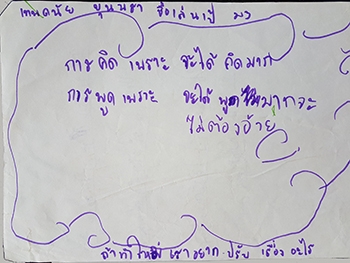 ชื่อเล่น เปี มว
การ คิด เพราะ จะได้ คิดมาก
การ พูด เพราะ จะได้ พูด มากจะ
ไม่ต้องอ้าย
ถ้าทำใหม่ เราอยาก ปรับ เรื่อง อะไร